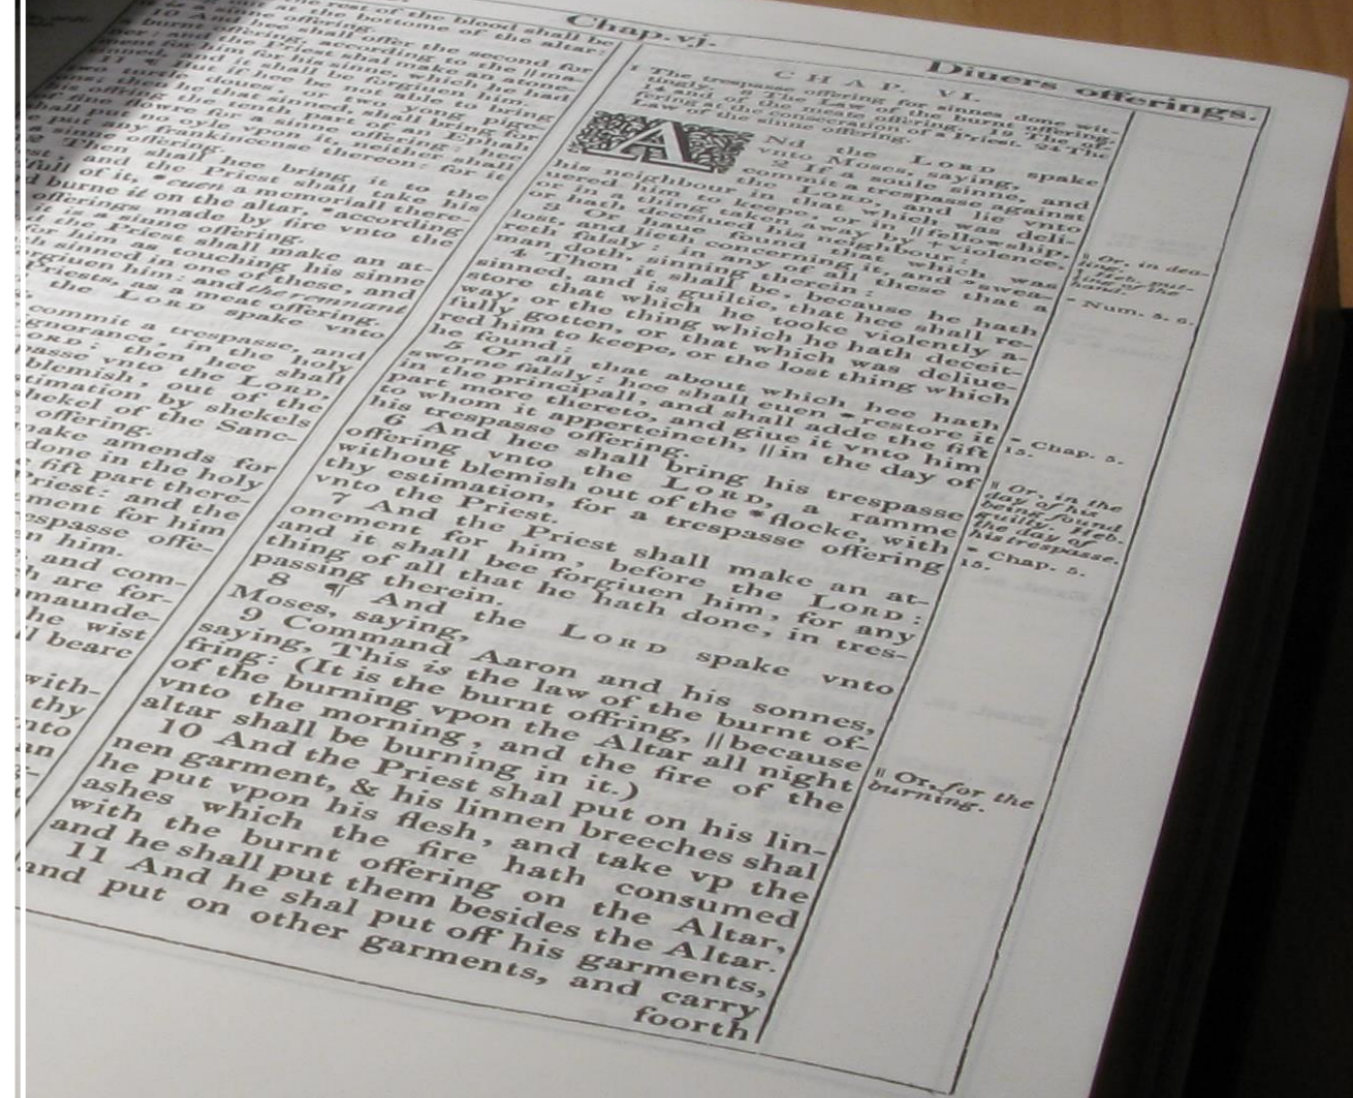 Chap.vj.
Diuers offerings.
the rest of the blood shall be
at the bottome of the altar:
offering.
10 And hee shall offer the second for
offering, according to the ||ma-
the Priest shal make an atone-
ment for him for his sinne, which he had
sinned, and it shall be forgiuen him.
11 ¶ But if hee be not able to bring
two turtle doues, or two yong pige-
ons; then he that sinned, shall bring for
his offering the tenth part of an Ephah
of fine flowre for a sinne offering: hee
shall put no oyle vpon it, neither shall
he put any frankincense thereon: for it
is a sinne offering.
12 Then shall hee bring it to the
Priest, and the Priest shall take his
handfull of it, *euen a memoriall there-
of, and burne it on the altar, *according
to the offerings made by fire vnto the
LORD: it is a sinne offering.
the Priest shall make an at-
for him as touching his sinne
hath sinned in one of these, and
forgiuen him: and the remnant
Priests, as a meat offering.
the LORD spake vnto
commit a trespasse, and
ignorance, in the holy
LORD; then hee shall
trespasse vnto the LORD,
blemish, out of the
estimation by shekels
shekel of the Sanc-
offering.
make amends for
done in the holy
fift part there-
Priest: and the
ment for him
trespasse offe-
n him.
and com-
h are for-
maunde-
he wist
ll beare
with-
thy
nto
an
CHAP. VI.
1 The trespasse offering for sinnes done wit-
tingly. 8 The Law of the burnt offering,
14 and of the meate offering. 19 The of-
fering at the consecration of a Priest. 24 The
Law of the sinne offering.
ANd the LORD spake
vnto Moses, saying,
2 If a soule sinne, and
commit a trespasse against
the LORD, and lie vnto
his neighbour in that which was deli-
uered him to keepe, or in ||fellowship,
or in a thing taken away by +violence,
or hath deceiued his neighbour:
3 Or haue found that which was
lost, and lieth concerning it, and *swea-
reth falsly: in any of all these that a
man doth, sinning therein:
4 Then it shall be, because he hath
sinned, and is guiltie, that hee shall re-
store that which he tooke violently a-
way, or the thing which he hath deceit-
fully gotten, or that which was deliue-
red him to keepe, or the lost thing which
he found:
5 Or all that about which hee hath
sworne falsly: hee shall euen *restore it
in the principall, and shall adde the fift
part more thereto, and giue it vnto him
to whom it apperteineth, ||in the day of
his trespasse offering.
6 And hee shall bring his trespasse
offering vnto the LORD, a ramme
without blemish out of the *flocke, with
thy estimation, for a trespasse offering
vnto the Priest.
7 And the Priest shall make an at-
onement for him, before the LORD:
and it shall bee forgiuen him, for any
thing of all that he hath done, in tres-
passing therein.
8 ¶ And the LORD spake vnto
Moses, saying,
9 Command Aaron and his sonnes,
saying, This is the law of the burnt of-
fring: (It is the burnt offring, ||because
of the burning vpon the Altar all night
vnto the morning, and the fire of the
altar shall be burning in it.)
10 And the Priest shal put on his lin-
nen garment, & his linnen breeches shal
he put vpon his flesh, and take vp the
ashes which the fire hath consumed
with the burnt offering on the Altar,
and he shall put them besides the Altar.
11 And he shal put off his garments,
and put on other garments, and carry
foorth
|| Or, in dea-
ling.
† Heb. put-
ting of the
hand.
* Num. 5. 6.
* Chap. 5.
15.
|| Or, in the
day of his
being found
guilty. Heb.
the day of
his trespasse.
* Chap. 5.
15.
|| Or, for the
burning.